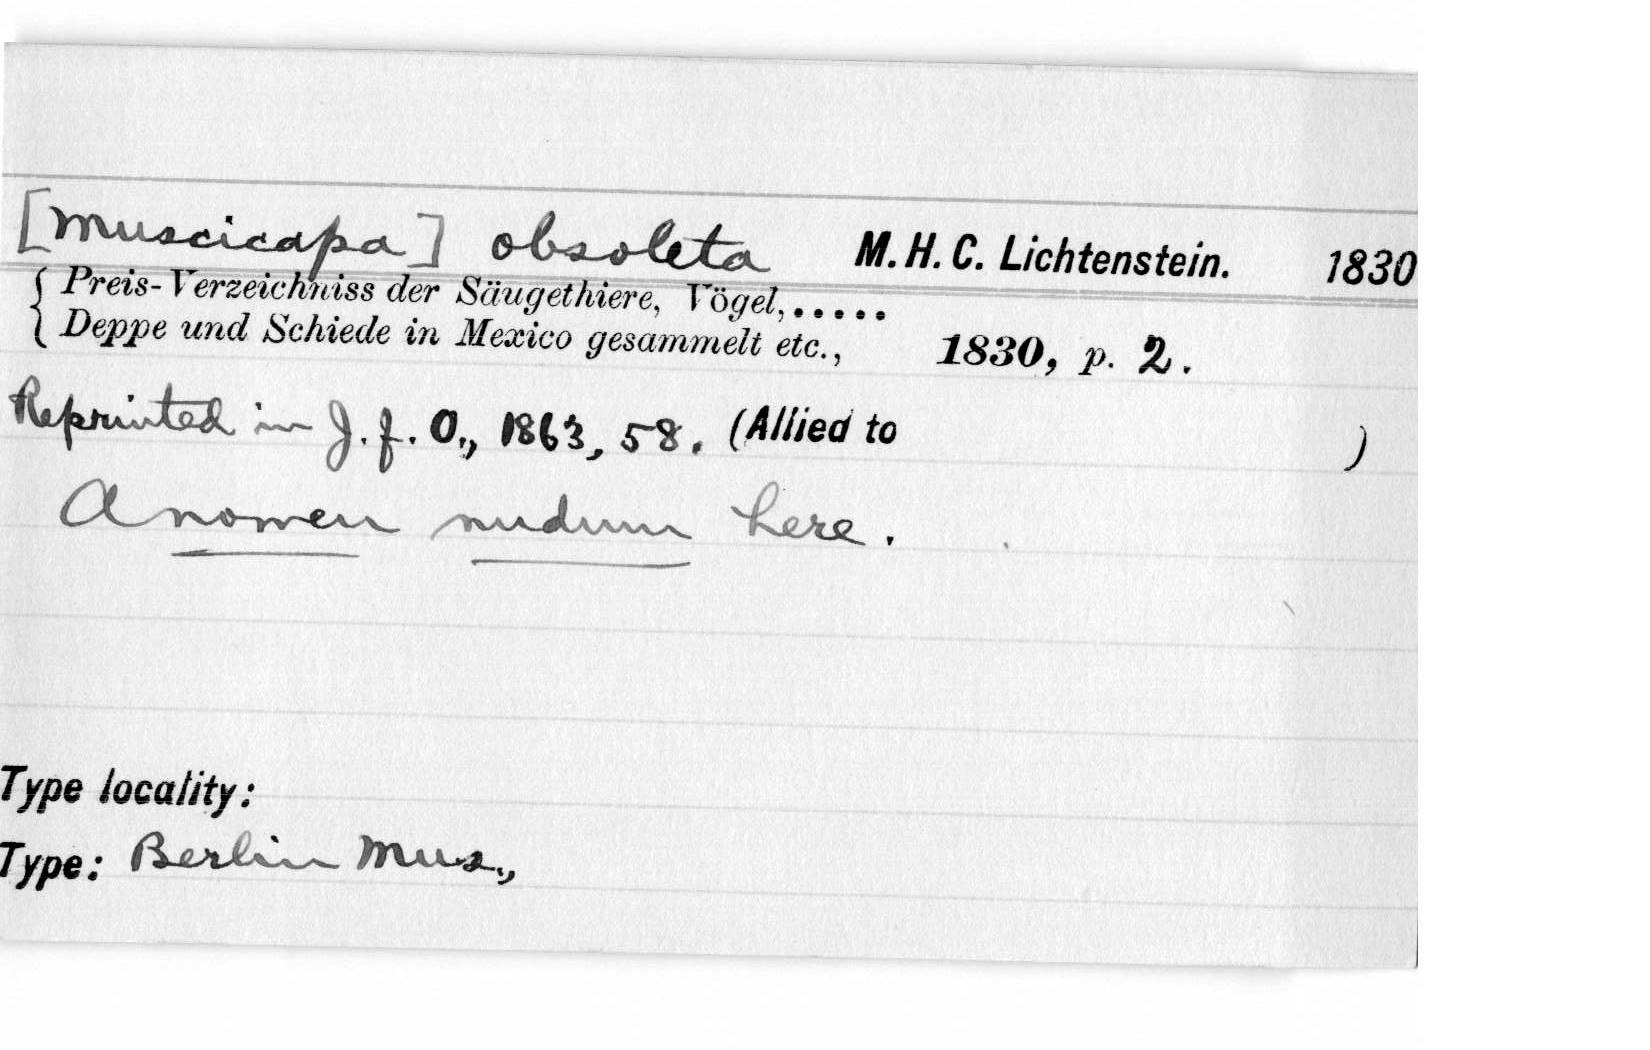 [Muscicapa] obsoleta M. H. C. Lichtenstein. 1830
{ Preis-Verzeichniss der Säugethiere, Vögel,.....
{ Deppe und Schiede in Mexico gesammelt etc., 1830, p. 2.
Reprinted in J. f. O., 1863, 58. (Allied to )
A nomen nudum here.
Type locality:
Type: Berlin Mus.,